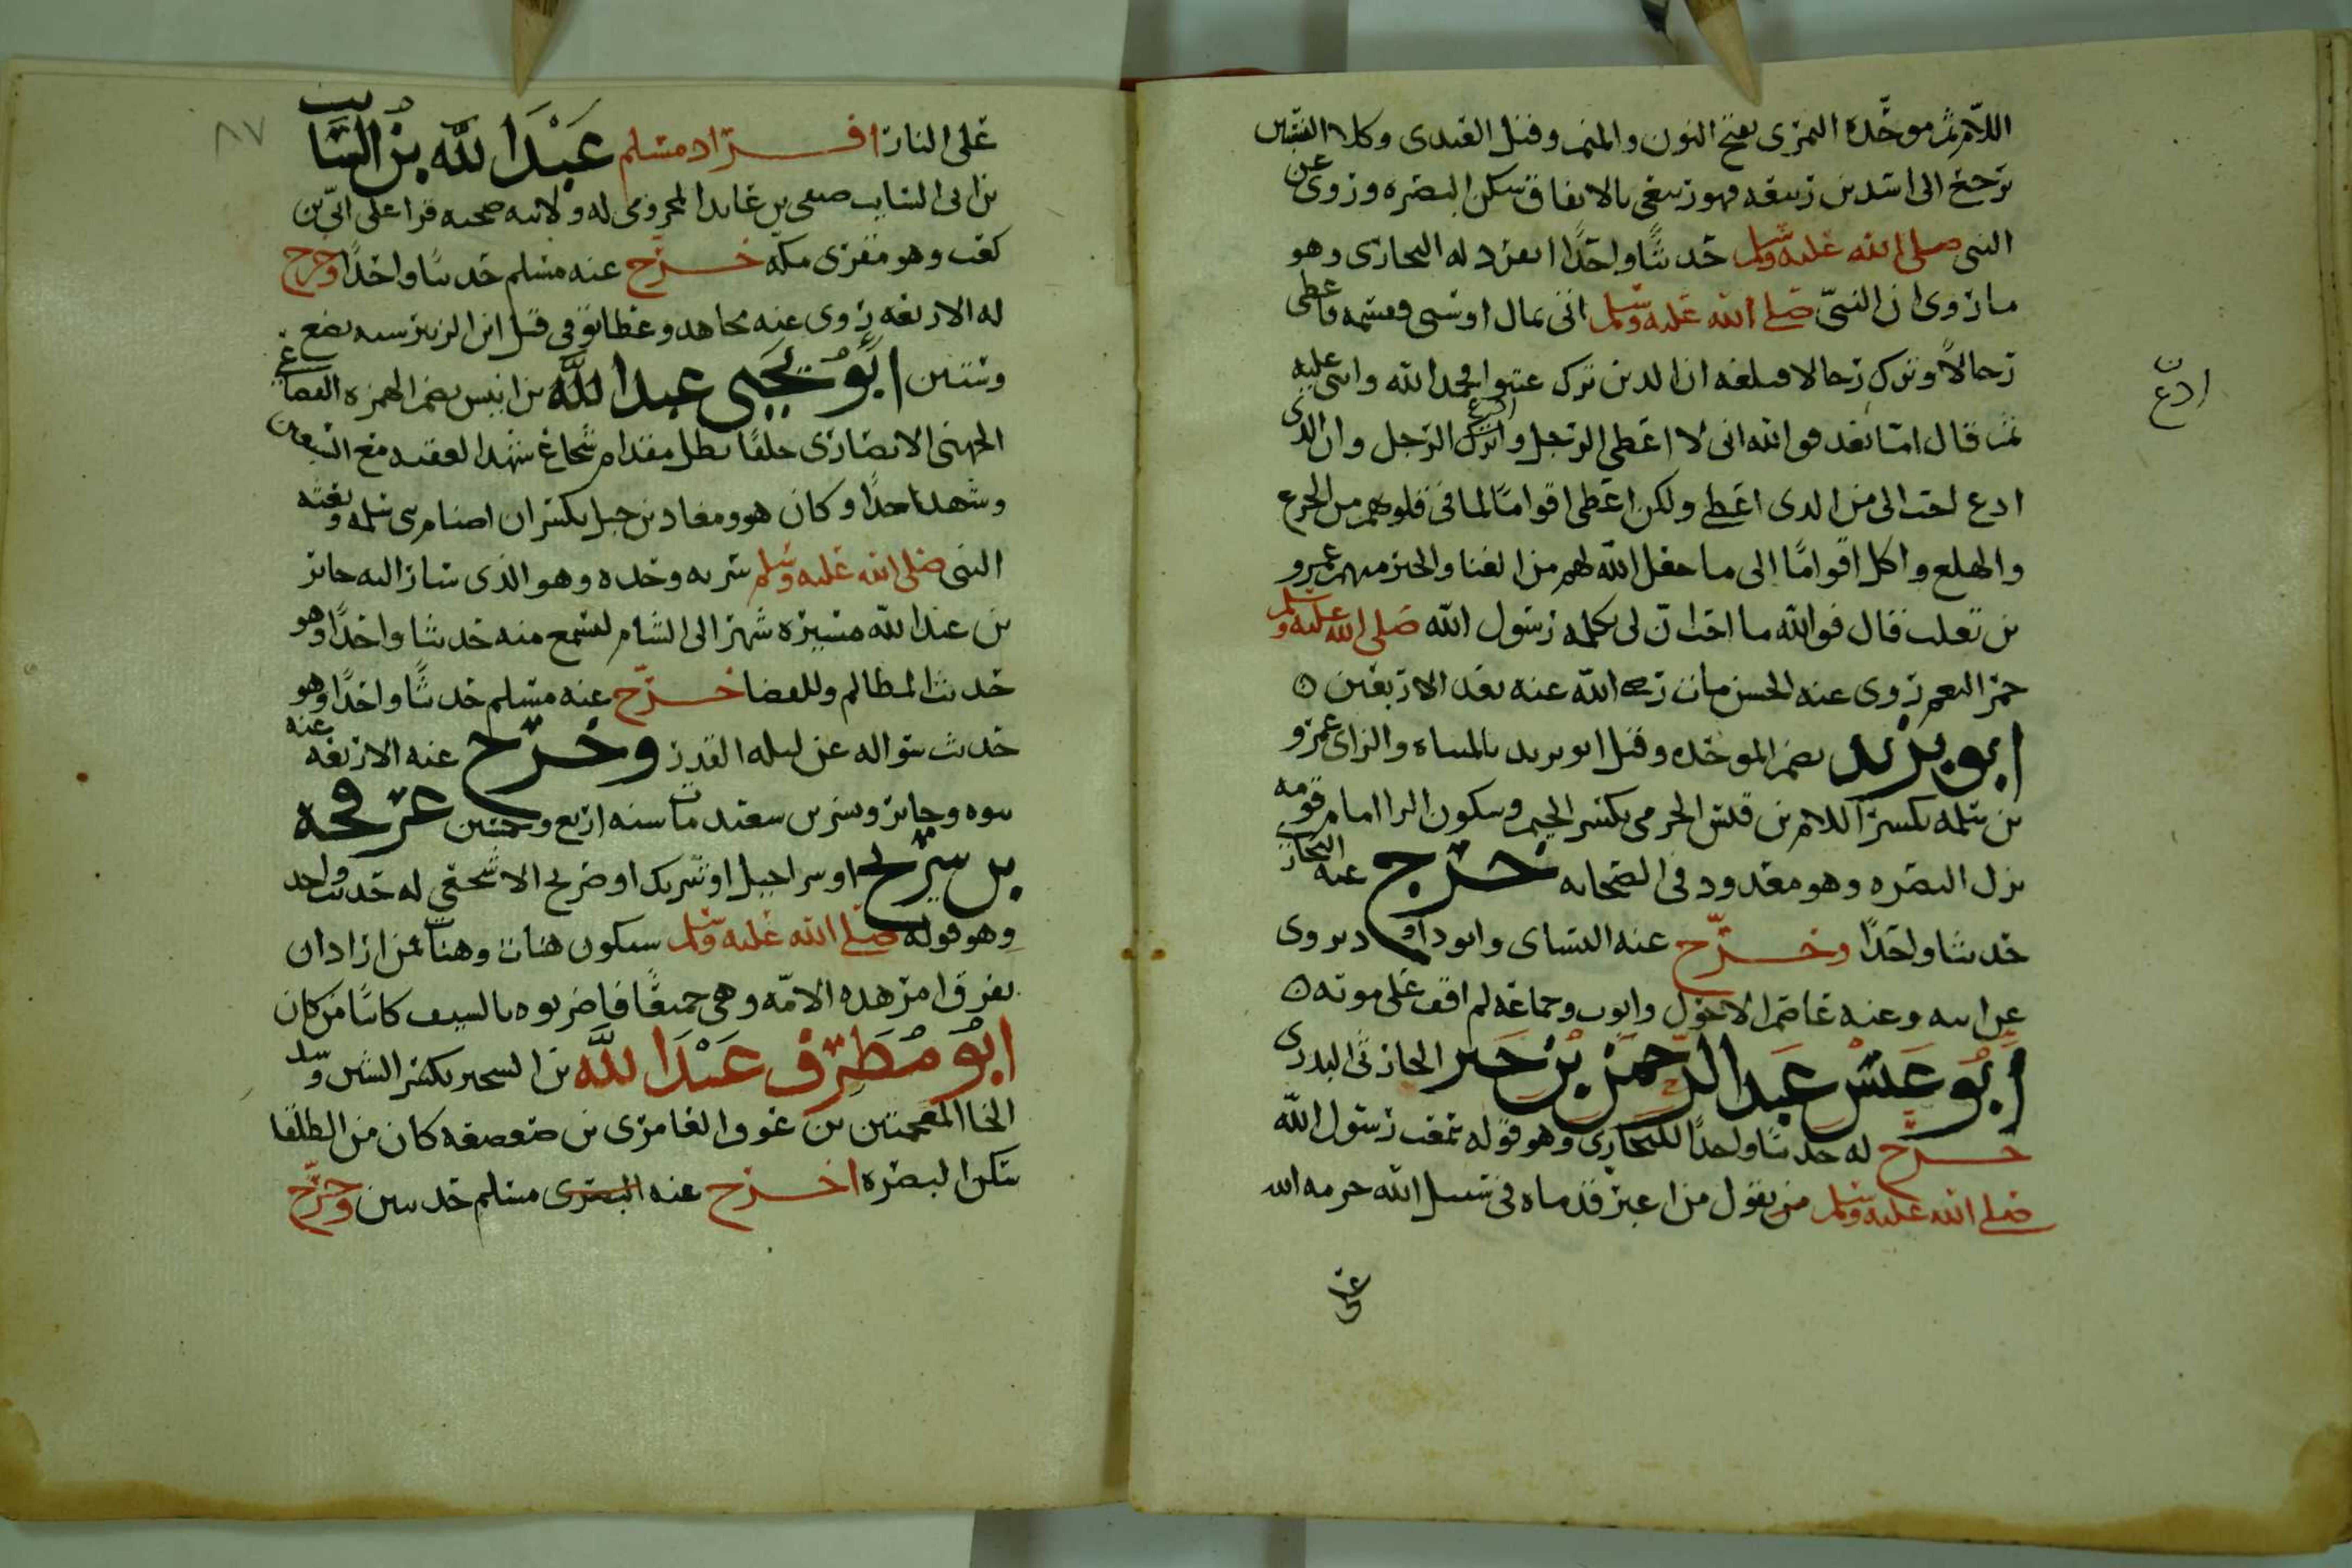 اللام ثم موحدة النمرى بفتح النون والميم وقيل العبدى وكلا النسبتين
ترجع الى اسد بن ربيعه فهو ربيعى بالاتفاق سكن البصره وروى عن
النبى صلى الله عليه وسلم حديثًا واحدًا انفرد له البخارى وهو
ما روى ان النبىّ صلى الله عليه وسلم اتى بمال او شى فقسمه واعطى
رجالاً وترك رجالا فبلغه ان الدين ترك عتبوا فحمد الله واثنى عليه
ثم قال اما بعد فو الله انى لا اعطى الرجل واترك الرجل وان الذى
ادع
ادع احب الى من الدى اعطى ولكن اعطى اقوامًا لما فى قلوبهم من الجزع
والهلع واكل اقوامًا الى ما جعل الله لهم من الغنا والخير منهم عمرو
بن تغلب قال فو الله ما احب ان لى بكلمه رسول الله صلى الله عليه وسلم
حمر النعم روى عنه الحسن مات رضى الله عنه بعد الاربعين
ابو بريد بضم الموحده وقيل ابو يزيد بالمثناه والزاى عمرو
بن سلمه بكسر اللام بن قيس الجرمى بكسر الجيم وسكون الرا امام قومه
نزل البصره وهو معدود فى الصحابه خرج عنه البخارى
حديثا واحدًا وخرّج عنه النساى وابو داود يروى
عن ابيه وعنه عاصم الاحول وايوب وجماعه لم اقف على موته
ابو عبس عبد الرحمن بن جبر الحارثى البدرى
خرّج له حديثا واحدًا للبخارى وهو قوله سمعت رسول الله
صلى الله عليه وسلم من يقول من اغبر قدماه فى سبيل الله حرمه الله
على
٨٧
على النار افراد مسلم عبد الله بن السايب
بن ابى السايب صيفى بن عايد المخزومى له ولابيه صحبه قرا على ابىّ بن
كعب وهو مقرى مكه خرّج عنه مسلم حديثا واحدًا وخرج
له الاربعه روى عنه مجاهد وعطا توفى قبل ابن الزبير سنه بضع
وستين ابو يحيى عبد الله بن انيس بضم الهمزه القضاعى
الجهنى الانصارى حلفًا بطل مقدام شجاع شهد العقبه مع السبعين
وشهد احدًا وكان هو ومعاد بن جبل يكسران اصنام بنى سلمه وبعثه
النبى صلى الله عليه وسلم سريه وحده وهو الذى سار اليه جابر
بن عبد الله مسيره شهر الى الشام ليسمع منه حديثا واحدًا وهو
حديث المظالم وللقضا خرّج عنه مسلم حديثًا واحدًا وهو
حديث سواله عن ليله القدر وخرّج عنه الاربعه عنه
بنوه وجابر وبسر بن سعيد مات سنه اربع وخمسين عرفجه
بن شريح او سراحيل او شريك او ضريح الاشجعى له حديث واحد
وهو قوله صلى الله عليه وسلم ستكون هنات وهنات فمن اراد ان
يفرق امر هده الامّه وهى جميعًا فاضربوه بالسيف كائنًا من كان
ابو مطرف عبد الله بن الشخير بكسر الشين وتشديد
الخا المعجمتين بن عوف العامرى بن صعصعه كان من الطلقا
سكن البصره اخرج عنه البصرى مسلم حديثين وخرّج